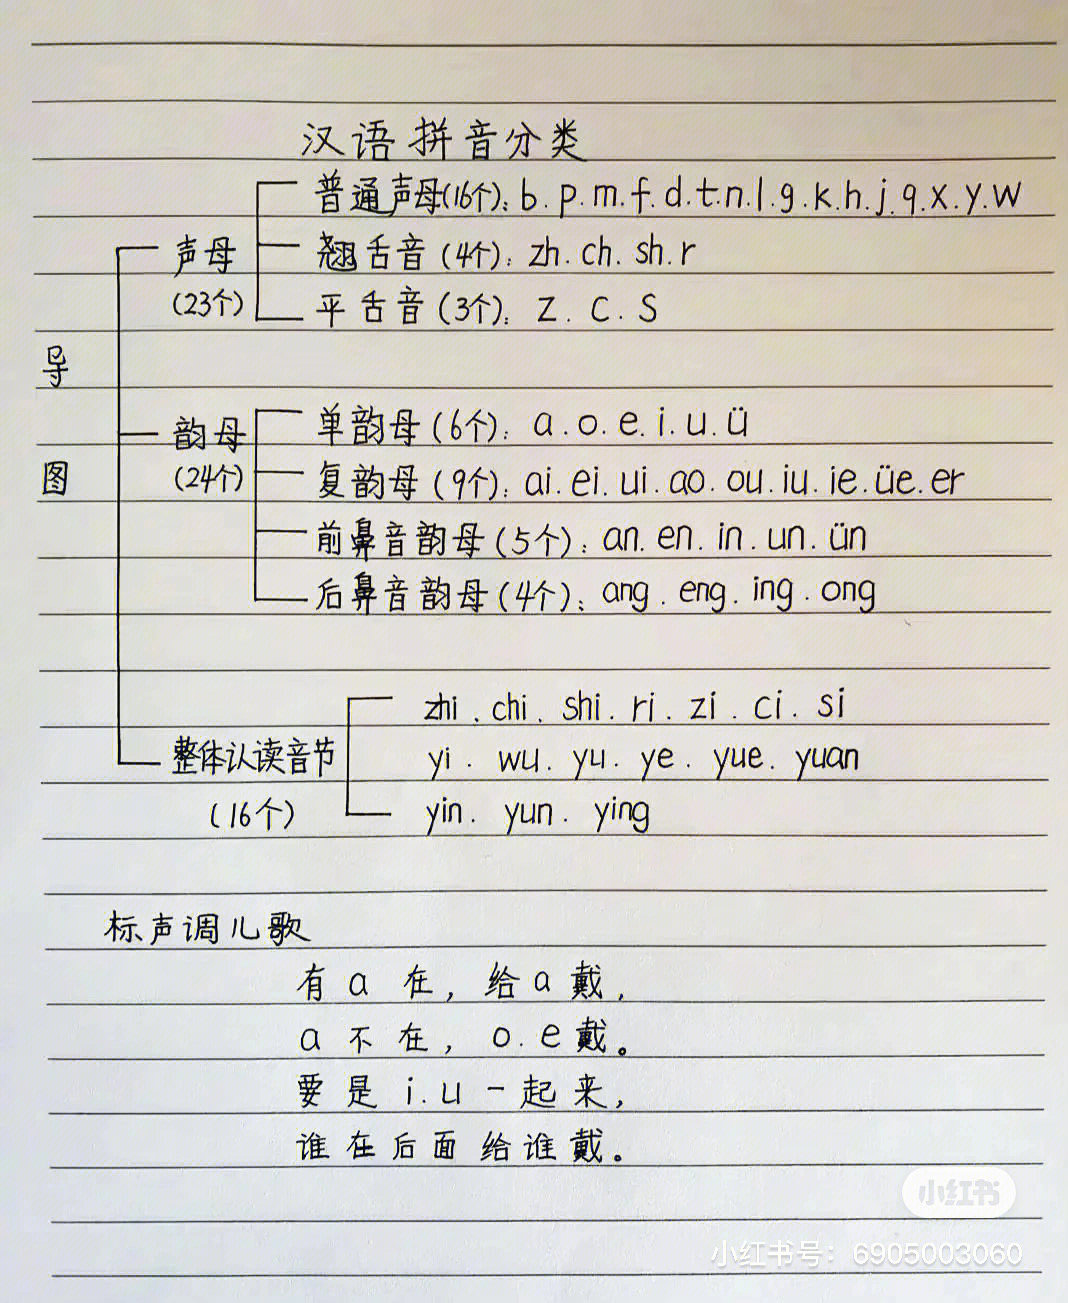 汉语拼音分类
普通声母(16个): b.p.m.f.d.t.n.l.g.k.h.j.q.x.y.w
声母
翘舌音(4个): zh.ch.sh.r
(23个)
平舌音(3个): z.c.s
导
单韵母(6个): a.o.e.i.u.ü
韵母
图
(24个)
复韵母(9个): ai.ei.ui.ao.ou.iu.ie.üe.er
前鼻音韵母(5个): an.en.in.un.ün
后鼻音韵母(4个): ang.eng.ing.ong
zhi.chi.shi.ri.zi.ci.si
整体认读音节
yi.wu.yu.ye.yue.yuan
(16个)
yin.yun.ying
标声调儿歌
有a在,给a戴,
a不在,o.e戴。
要是i.u一起来,
谁在后面给谁戴。
小红书
小红书号:6905003060